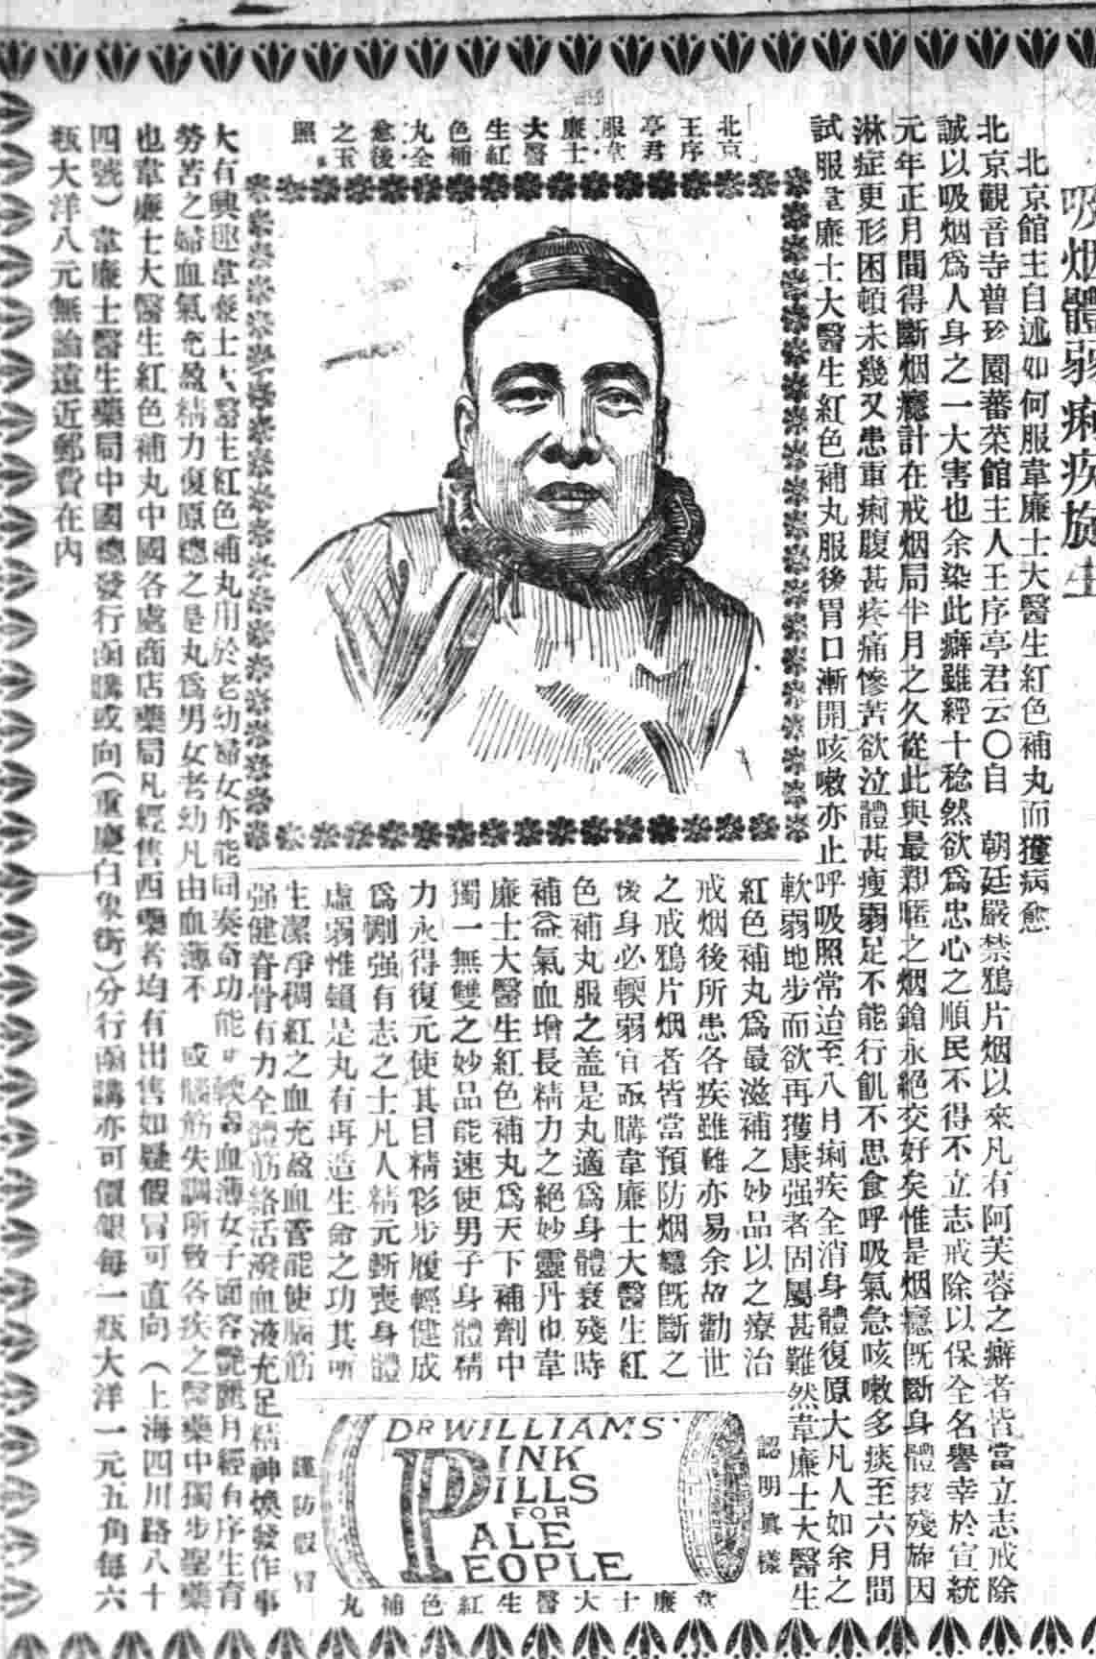 吸烟體弱痢疾旋生
北京館主自述如何服韋廉士大醫生紅色補丸而獲病愈
北京觀音寺普珍園蕃菜館主人王序亭君云〇自 朝廷嚴禁鴉片烟以來凡有阿芙蓉之癖者皆當立志戒除
誠以吸烟爲人身之一大害也余染此癖雖經十稔然欲爲忠心之順民不得不立志戒除以保全名譽幸於宣統
元年正月間得斷烟癮計在戒烟局半月之久從此與最親暱之烟鎗永絕交好矣惟是烟癮既斷身體衰殘旋因
淋症更形困頓未幾又患重痢腹甚疼痛慘苦欲泣體甚瘦弱足不能行飢不思食呼吸氣急咳嗽多痰至六月間
試服韋廉士大醫生紅色補丸服後胃口漸開咳嗽亦止呼吸照常迨至八月痢疾全消身體復原大凡人如余之
軟弱地步而欲再獲康强者固屬甚難然韋廉士大醫生
紅色補丸爲最滋補之妙品以之療治
戒烟後所患各疾雖難亦易余故勸世
之戒鴉片烟者皆當預防烟癮既斷之
後身必輭弱宜亟購韋廉士大醫生紅
色補丸服之盖是丸適爲身體衰殘時
補益氣血增長精力之絕妙靈丹也韋
廉士大醫生紅色補丸爲天下補劑中
獨一無雙之妙品能速使男子身體精
力永得復元使其目精彩步履輕健成
爲剛强有志之士凡人精元斲喪身體
虛弱惟賴是丸有再造生命之功其所
生潔凈稠紅之血充盈血管能使腦筋
强健脊骨有力全體筋絡活潑血液充足精神煥發作事
大有興趣韋廉士大醫生紅色補丸用於老幼婦女亦能同奏奇功能 輭弱血薄女子面容艷麗月經有序生育
勞苦之婦血氣充盈精力復原總之是丸爲男女老幼凡由血薄不 或腦筋失調所致各疾之醫藥中獨步聖藥
也韋廉士大醫生紅色補丸中國各處商店藥局凡經售西藥者均有出售如疑假冒可直向(上海四川路八十
四號)韋廉士醫生藥局中國總發行函購或向(重慶白象街)分行函購亦可價銀每一瓶大洋一元五角每六
瓶大洋八元無論遠近郵費在內
北京
王序
亭君
服韋
廉士
大醫
生紅
色補
丸全
愈後
之玉
照
認明眞樣
DR WILLIAMS'
PINK
PILLS
FOR
PALE
PEOPLE
謹防假冒
韋廉士大醫生紅色補丸